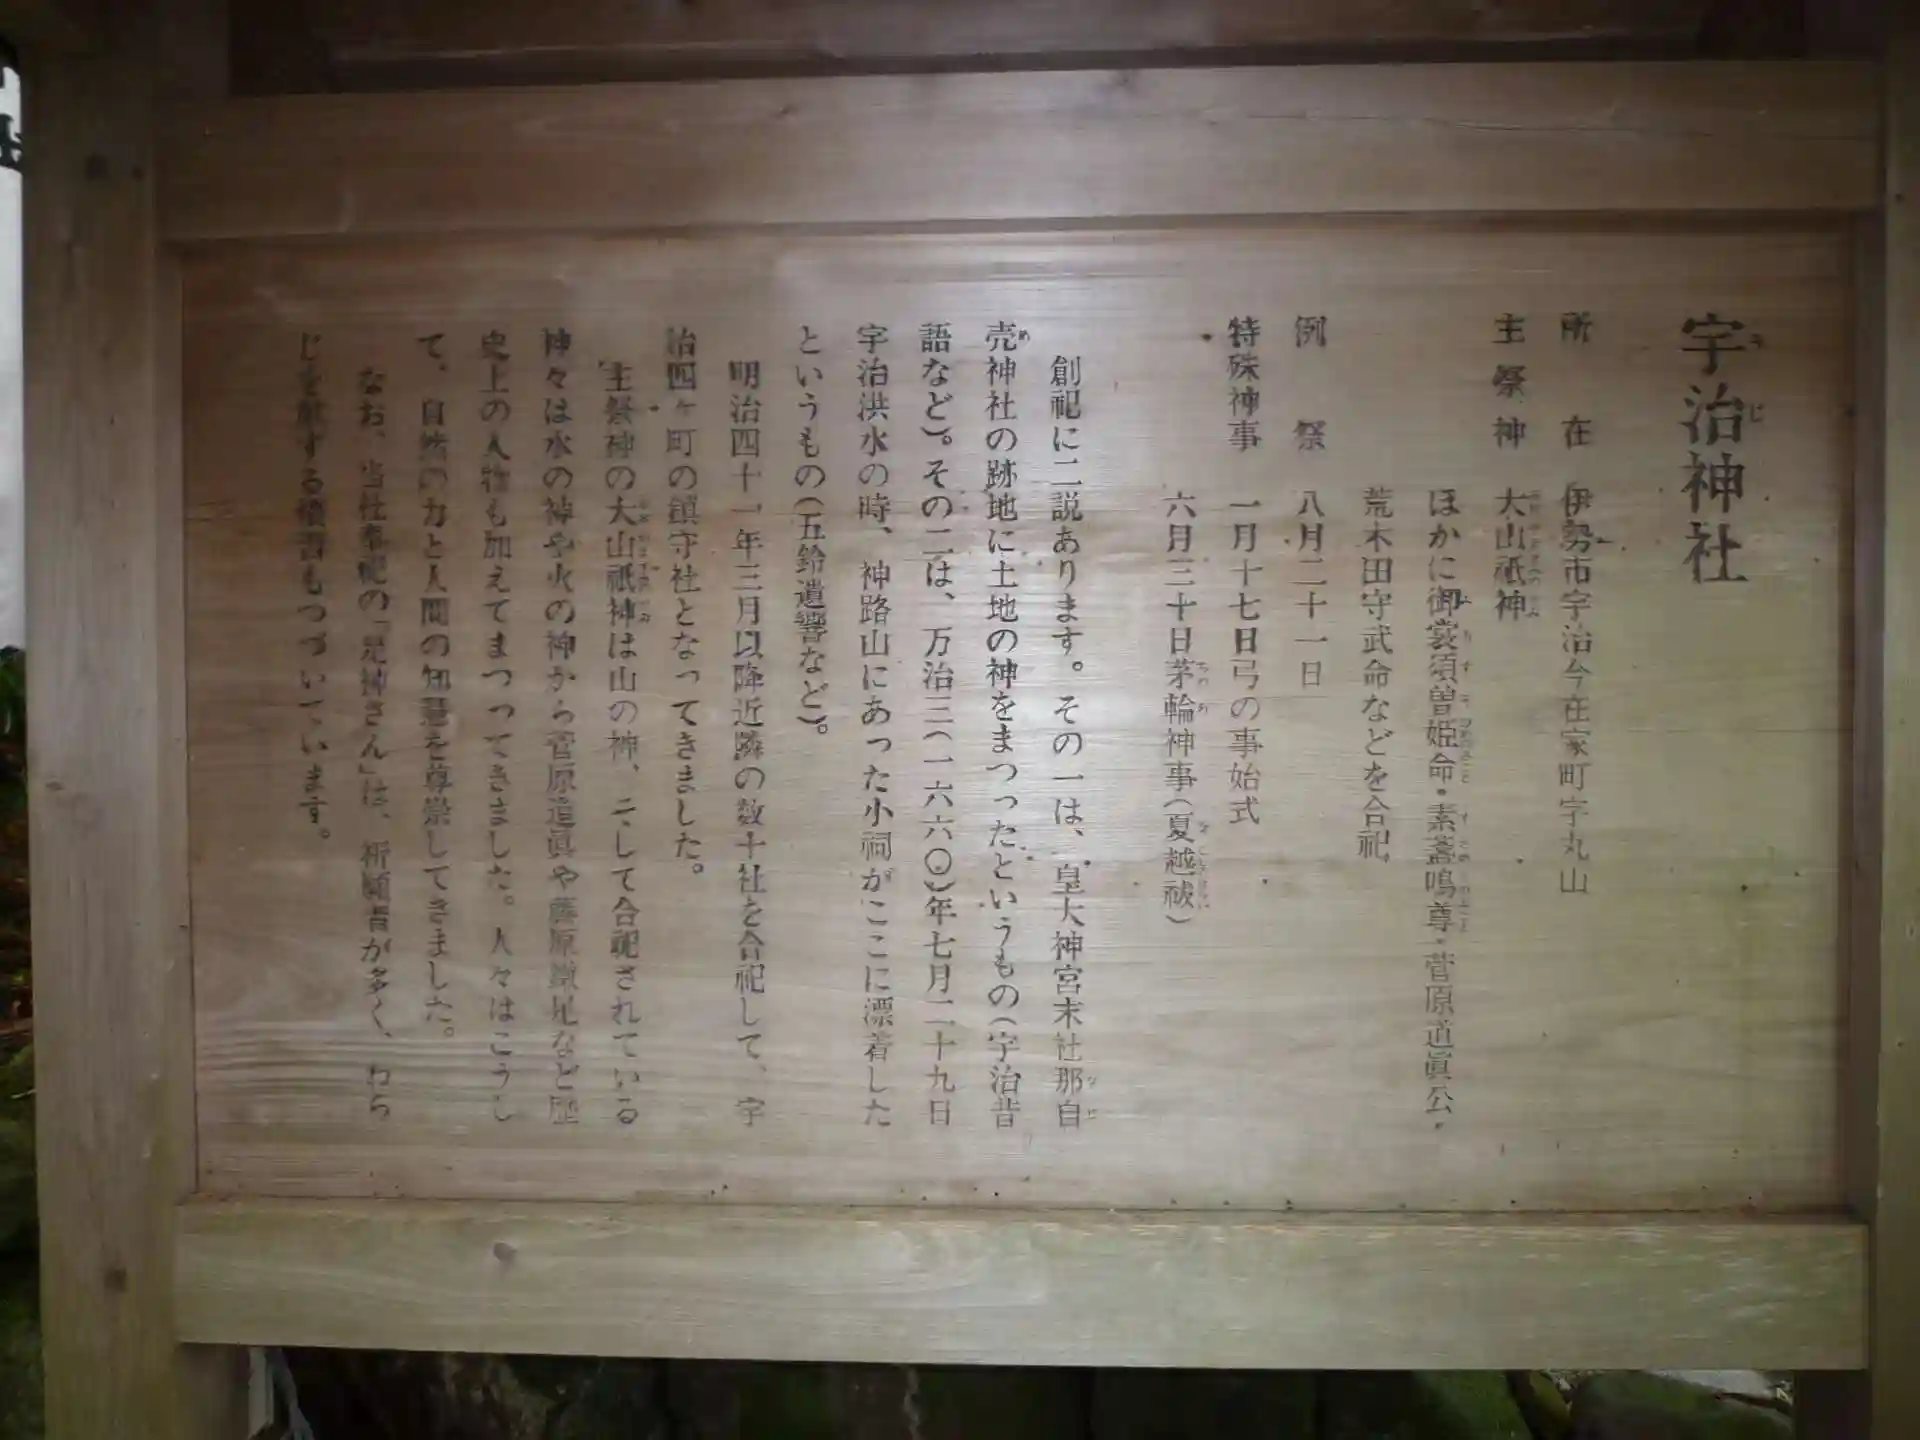 宇治神社
所在 伊勢市宇治今在家町字丸山
主祭神 大山祇神
ほかに御裳須曽姫命・素盞鳴尊・菅原道眞公・
荒木田守武命などを合祀
例祭 八月二十一日
特殊神事 一月十七日弓の事始式
六月三十日茅輪神事(夏越祓)
創祀に二説あります。その一は、皇大神宮末社那自
売神社の跡地に土地の神をまつったというもの(宇治昔
語など)。その二は、万治三(一六六〇)年七月二十九日
宇治洪水の時、神路山にあった小祠がここに漂着した
というもの(五鈴遺響など)。
明治四十一年三月以降近隣の数十社を合祀して、宇
治四ヶ町の鎮守社となってきました。
主祭神の大山祇神は山の神、そして合祀されている
神々は水の神や火の神から菅原道眞や藤原鎌足など歴
史上の人物も加えてまつってきました。人々はこうし
て、自然の力と人間の知慧を尊崇してきました。
なお、当社奉祀の「足神さん」は、祈願者が多く、わら
じを献する慣習もつづいています。